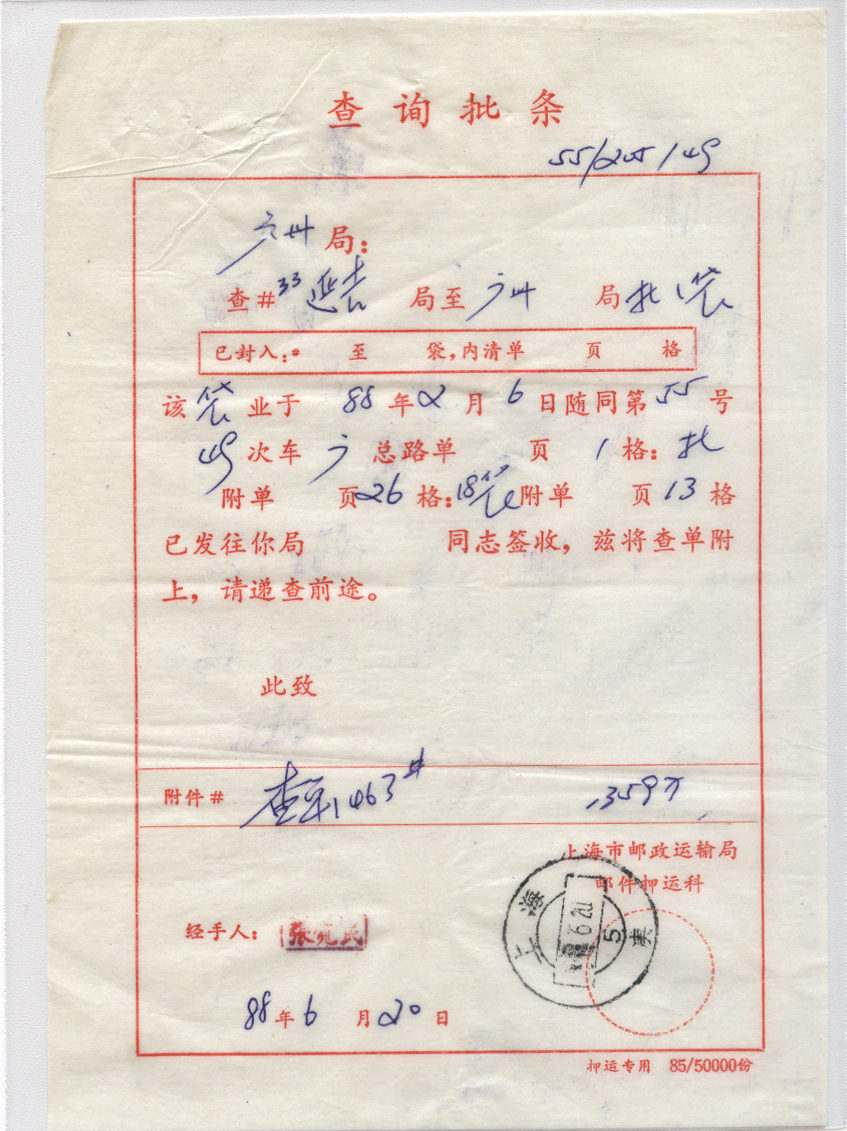 查询批条
55/205/49
广州局：
查#33延吉 局至广州 局扎1袋
已封入：# 至 袋，内清单 页 格
该袋业于 88年2月6日随同第55号
49次车广总路单 页1格：扎
附单 页26格：18袋附单 页13格
已发往你局 同志签收，兹将查单附
上，请递查前途。
此致
附件# 查单1463#
上海市邮政运输局
邮件押运科
上海
6 20
5
经手人：
88年6月20日
押运专用 85/50000份